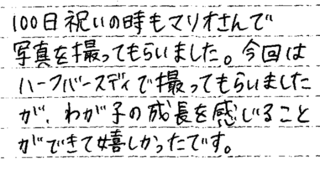 100日祝いの時もマリオさんで
写真を撮ってもらいました。今回は
ハーフバースディで撮ってもらいました
が、わが子の成長を感じること
ができて嬉しかったです。